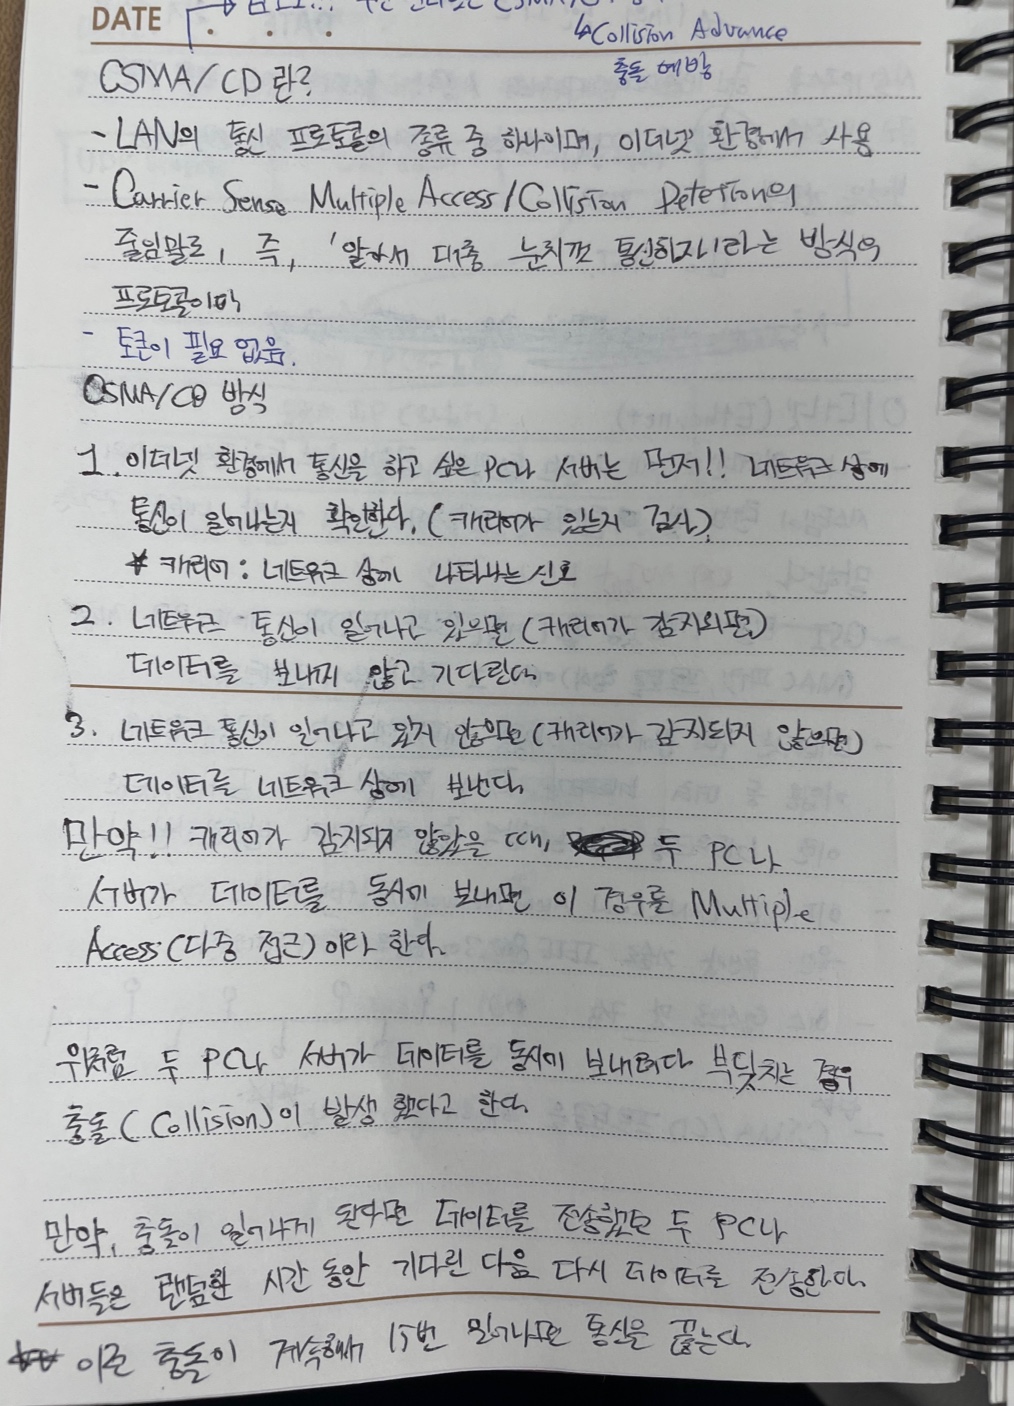 DATE
↳Collision Advance
충돌 예방
CSMA/CD란?
- LAN의 통신 프로토콜의 종류 중 하나이며, 이더넷 환경에서 사용
- Carrier Sense Multiple Access/Collision Detetion의
줄임말로, 즉, '알아서 대충 눈치껏 통신하자'라는 방식의
프로토콜이다
- 토큰이 필요 없음.
CSMA/CD 방식
1. 이더넷 환경에서 통신을 하고 싶은 PC나 서버는 먼저!! 네트워크 상에
통신이 일어나는지 확인한다. (캐리어가 있는지 검사)
* 캐리어 : 네트워크 상에 나타나는 신호
2. 네트워크 통신이 일어나고 있으면 (캐리어가 감지되면)
데이터를 보내지 않고 기다린다
3. 네트워크 통신이 일어나고 있지 않으면 (캐리어가 감지되지 않으면)
데이터를 네트워크 상에 보낸다.
만약!! 캐리어가 감지되지 않았을 때, 두 PC나
서버가 데이터를 동시에 보내면 이 경우를 Multiple
Access(다중 접근)이라 한다.
위처럼 두 PC나 서버가 데이터를 동시에 보내려다 부딪치는 경우
충돌(Collision)이 발생 했다고 한다.
만약, 충돌이 일어나게 된다면 데이터를 전송했던 두 PC나
서버들은 랜덤한 시간 동안 기다린 다음 다시 데이터를 전송한다.
이런 충돌이 계속해서 15번 일어나면 통신을 끊는다.